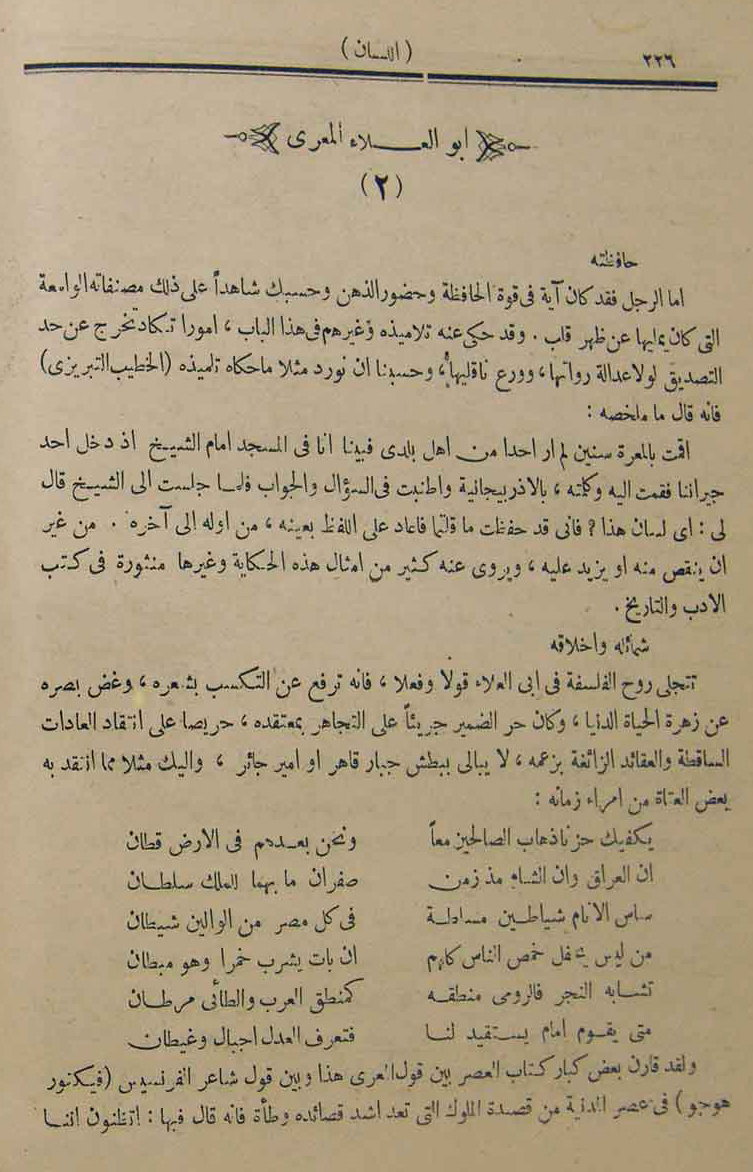 ٢٢٦
( اللسان )
ابو العـــلاء المعرى
(٢)
حافظته
اما الرجل فقد كان آية فى قوة الحافظة وحضور الذهن وحسبك شاهداً على ذلك مصنفاته الواسعة
التى كان يمليها عن ظهر قلب . وقد حكى عنه تلاميذه وغيرهم فى هذا الباب ، امورا تكاد تخرج عن حد
التصديق لولا عدالة رواتها ، وورع ناقليها ، وحسبنا ان نورد مثلا ما حكاه تلميذه (الخطيب التبريزى)
فانه قال ما ملخصه :
اقمت بالمعرة سنين لم ار احدا من اهل بلدى فبينا انا فى المسجد امام الشيخ اذ دخل احد
جيراننا فقمت اليه وكلمته ، بالاذربيجانية واطنبت فى السؤال والجواب فلما جلست الى الشيخ قال
لى : اى لسان هذا ? فانى قد حفظت ما قلتما فاعاد على اللفظ بعينه ، من اوله الى آخره . من غير
ان ينقص منه او يزيد عليه ، ويروى عنه كثير من امثال هذه الحكاية وغيرها منثورة فى كتب
الادب والتاريخ .
شمائله واخلاقه
تتجلى روح الفلسفة فى ابى العلاء قولا وفعلا ، فانه ترفع عن التكسب بشعره ، وغض بصره
عن زهرة الحياة الدنيا ، وكان حر الضمير جريئاً على التجاهر بمعتقده ، حريصا على انتقاد العادات
الساقطة والعقائد الزائغة بزعمه ، لا يبالى ببطش جبار قاهر او امير جائر ، واليك مثلا مما انتقد به
بعض العتاة من امراء زمانه :
يكفيك حزنا ذهاب الصالحين معاً ونحن بعدهم فى الارض قطان
ان العراق وان الشام مذ زمن صفران ما بهما للملك سلطان
ساس الانام شياطين مسلطة فى كل مصر من الوالين شيطان
من ليس يحفل خمص الناس كلهم ان بات يشرب خمرا وهو مبطان
تشابه النجر فالرومى منطقه كمنطق العرب والطائى مرطان
متى يقوم امام يستقيد لنا فتعرف العدل اجبال وغيطان
ولقد قارن بعض كبار كتاب العصر بين قول المعرى هذا وبين قول شاعر الفرنسيس (فيكتور
هوجو) فى عصر المدنية من قصيدة الملوك التى تعد اشد قصائده وطأة فانه قال فيها : اتظنون اننا